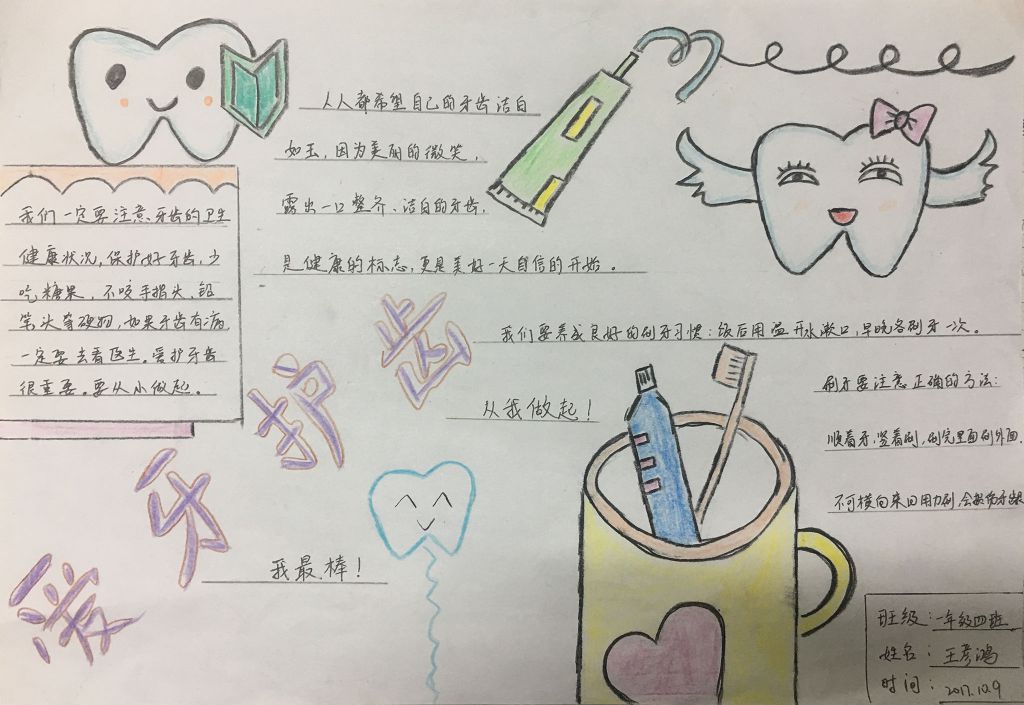 人人都希望自己的牙齿洁白
如玉，因为美丽的微笑，
露出一口整齐、洁白的牙齿，
是健康的标志，更是美好一天自信的开始。
我们一定要注意牙齿的卫生
健康状况，保护好牙齿，少
吃糖果，不咬手指头，铅
笔头等硬物，如果牙齿有病
一定要去看医生。爱护牙齿
很重要。要从小做起。
爱牙护齿
我们要养成良好的刷牙习惯：饭后用温开水漱口，早晚各刷牙一次。
从我做起！
刷牙要注意正确的方法：
顺着牙，竖着刷，刷完里面刷外面，
不可横向来回用力刷，会损伤牙龈
我最棒！
班级：一年级四班
姓名：王彦鸿
时间：2017.10.9